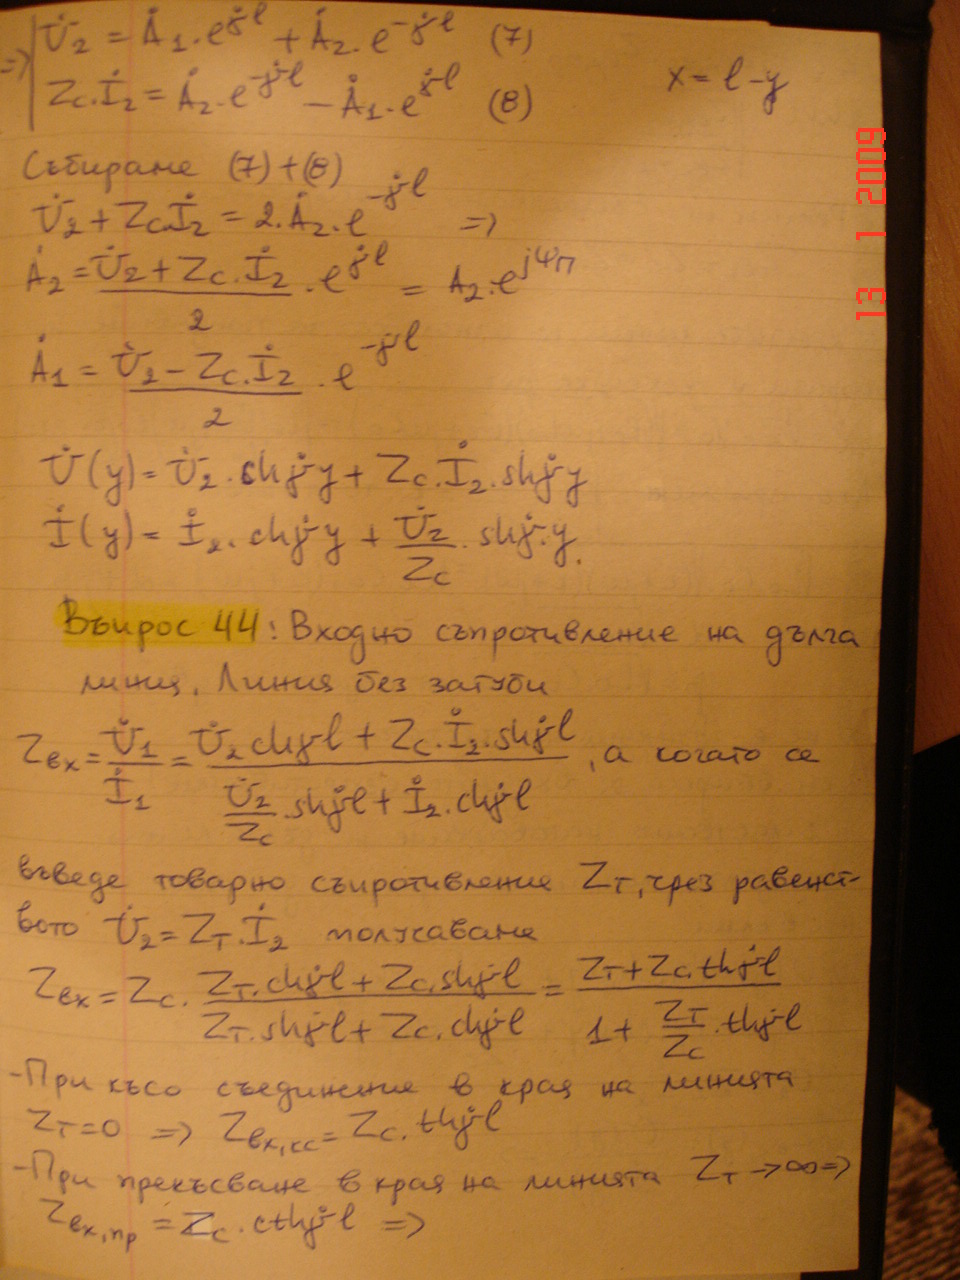 => U̇₂ = Ȧ₁.e^(γ̇l) + Ȧ₂.e^(-γ̇l) (7)
Zc.İ₂ = Ȧ₂.e^(-γ̇l) - Ȧ₁.e^(γ̇l) (8)
x = l - y
Събираме (7)+(8)
U̇₂ + Zcİ₂ = 2.Ȧ₂.e^(-γ̇l) =>
Ȧ₂ = (U̇₂ + Zc.İ₂)/2 . e^(γ̇l) = A₂.e^(jΨп)
Ȧ₁ = (U̇₂ - Zc.İ₂)/2 . e^(-γ̇l)
U̇(y) = U̇₂.chγ̇y + Zc.İ₂.shγ̇y
İ(y) = İ₂.chγ̇y + U̇₂/Zc . shγ̇.y.
Въпрос 44: Входно съпротивление на дълга
линия. Линия без загуби
Zвх = U̇₁/İ₁ = (U̇₂chγ̇l + Zc.İ₂.shγ̇l)/(U̇₂/Zc .shγ̇l + İ₂.chγ̇l), а когато се
въведе товарно съпротивление Zт, чрез равенст-
вото U̇₂ = Zт.İ₂ получаваме
Zвх = Zc.(Zт.chγ̇l + Zc.shγ̇l)/(Zт.shγ̇l + Zc.chγ̇l) = (Zт + Zc.thγ̇l)/(1 + Zт/Zc .thγ̇l)
-При късо съединение в края на линията
Zт=0 => Zвх,кс = Zc.thγ̇l
-При прекъсване в края на линията Zт→∞ =>
Zвх,пр = Zc.cthγ̇l =>
13 1 2009